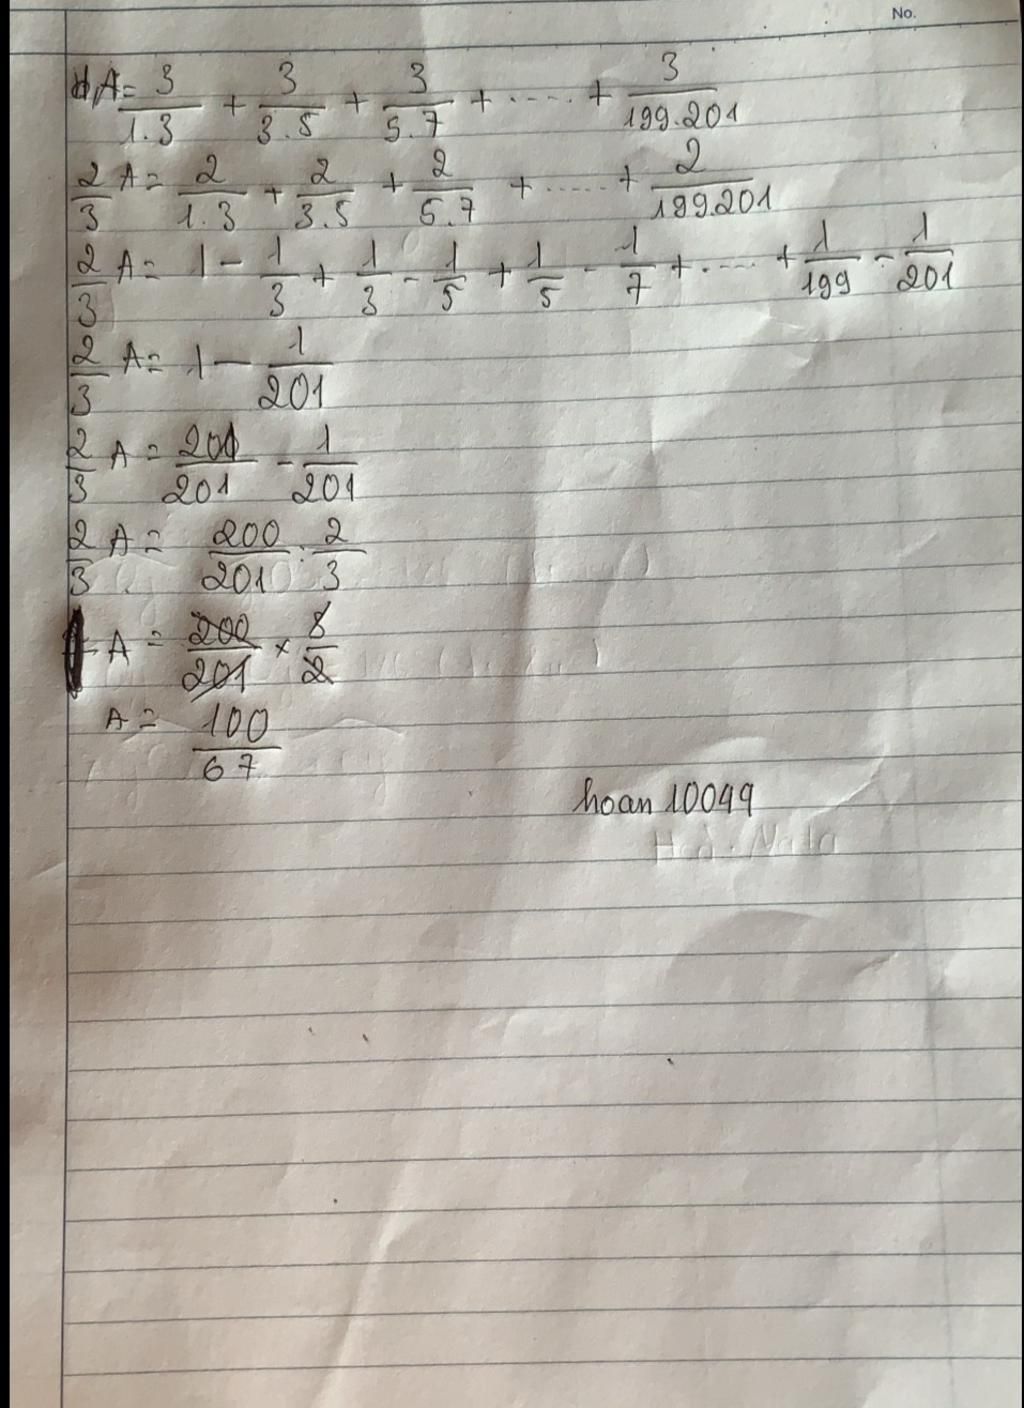 No.
A = 3/1.3 + 3/3.5 + 3/5.7 + ..... + 3/199.201
2/3 A = 2/1.3 + 2/3.5 + 2/5.7 + ..... + 2/199.201
2/3 A = 1 - 1/3 + 1/3 - 1/5 + 1/5 - 1/7 + ..... + 1/199 - 1/201
2/3 A = 1 - 1/201
2/3 A = 201/201 - 1/201
2/3 A = 200/201 : 2/3
A = 200/201 × 3/2
A = 100/67
hoan 10049